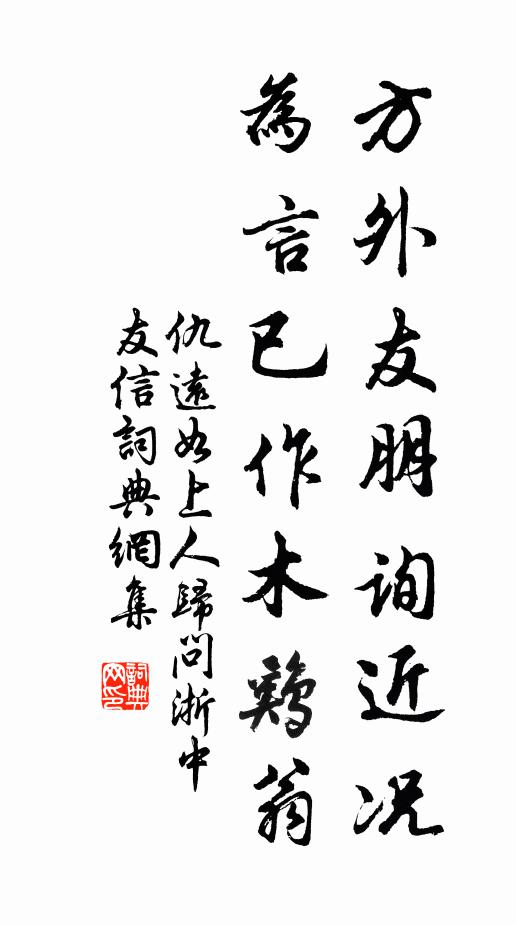 方外友朋詢近况
為言已作木鷄翁
仇遠如上人歸問浙中
友信詞典網集
詞典網印